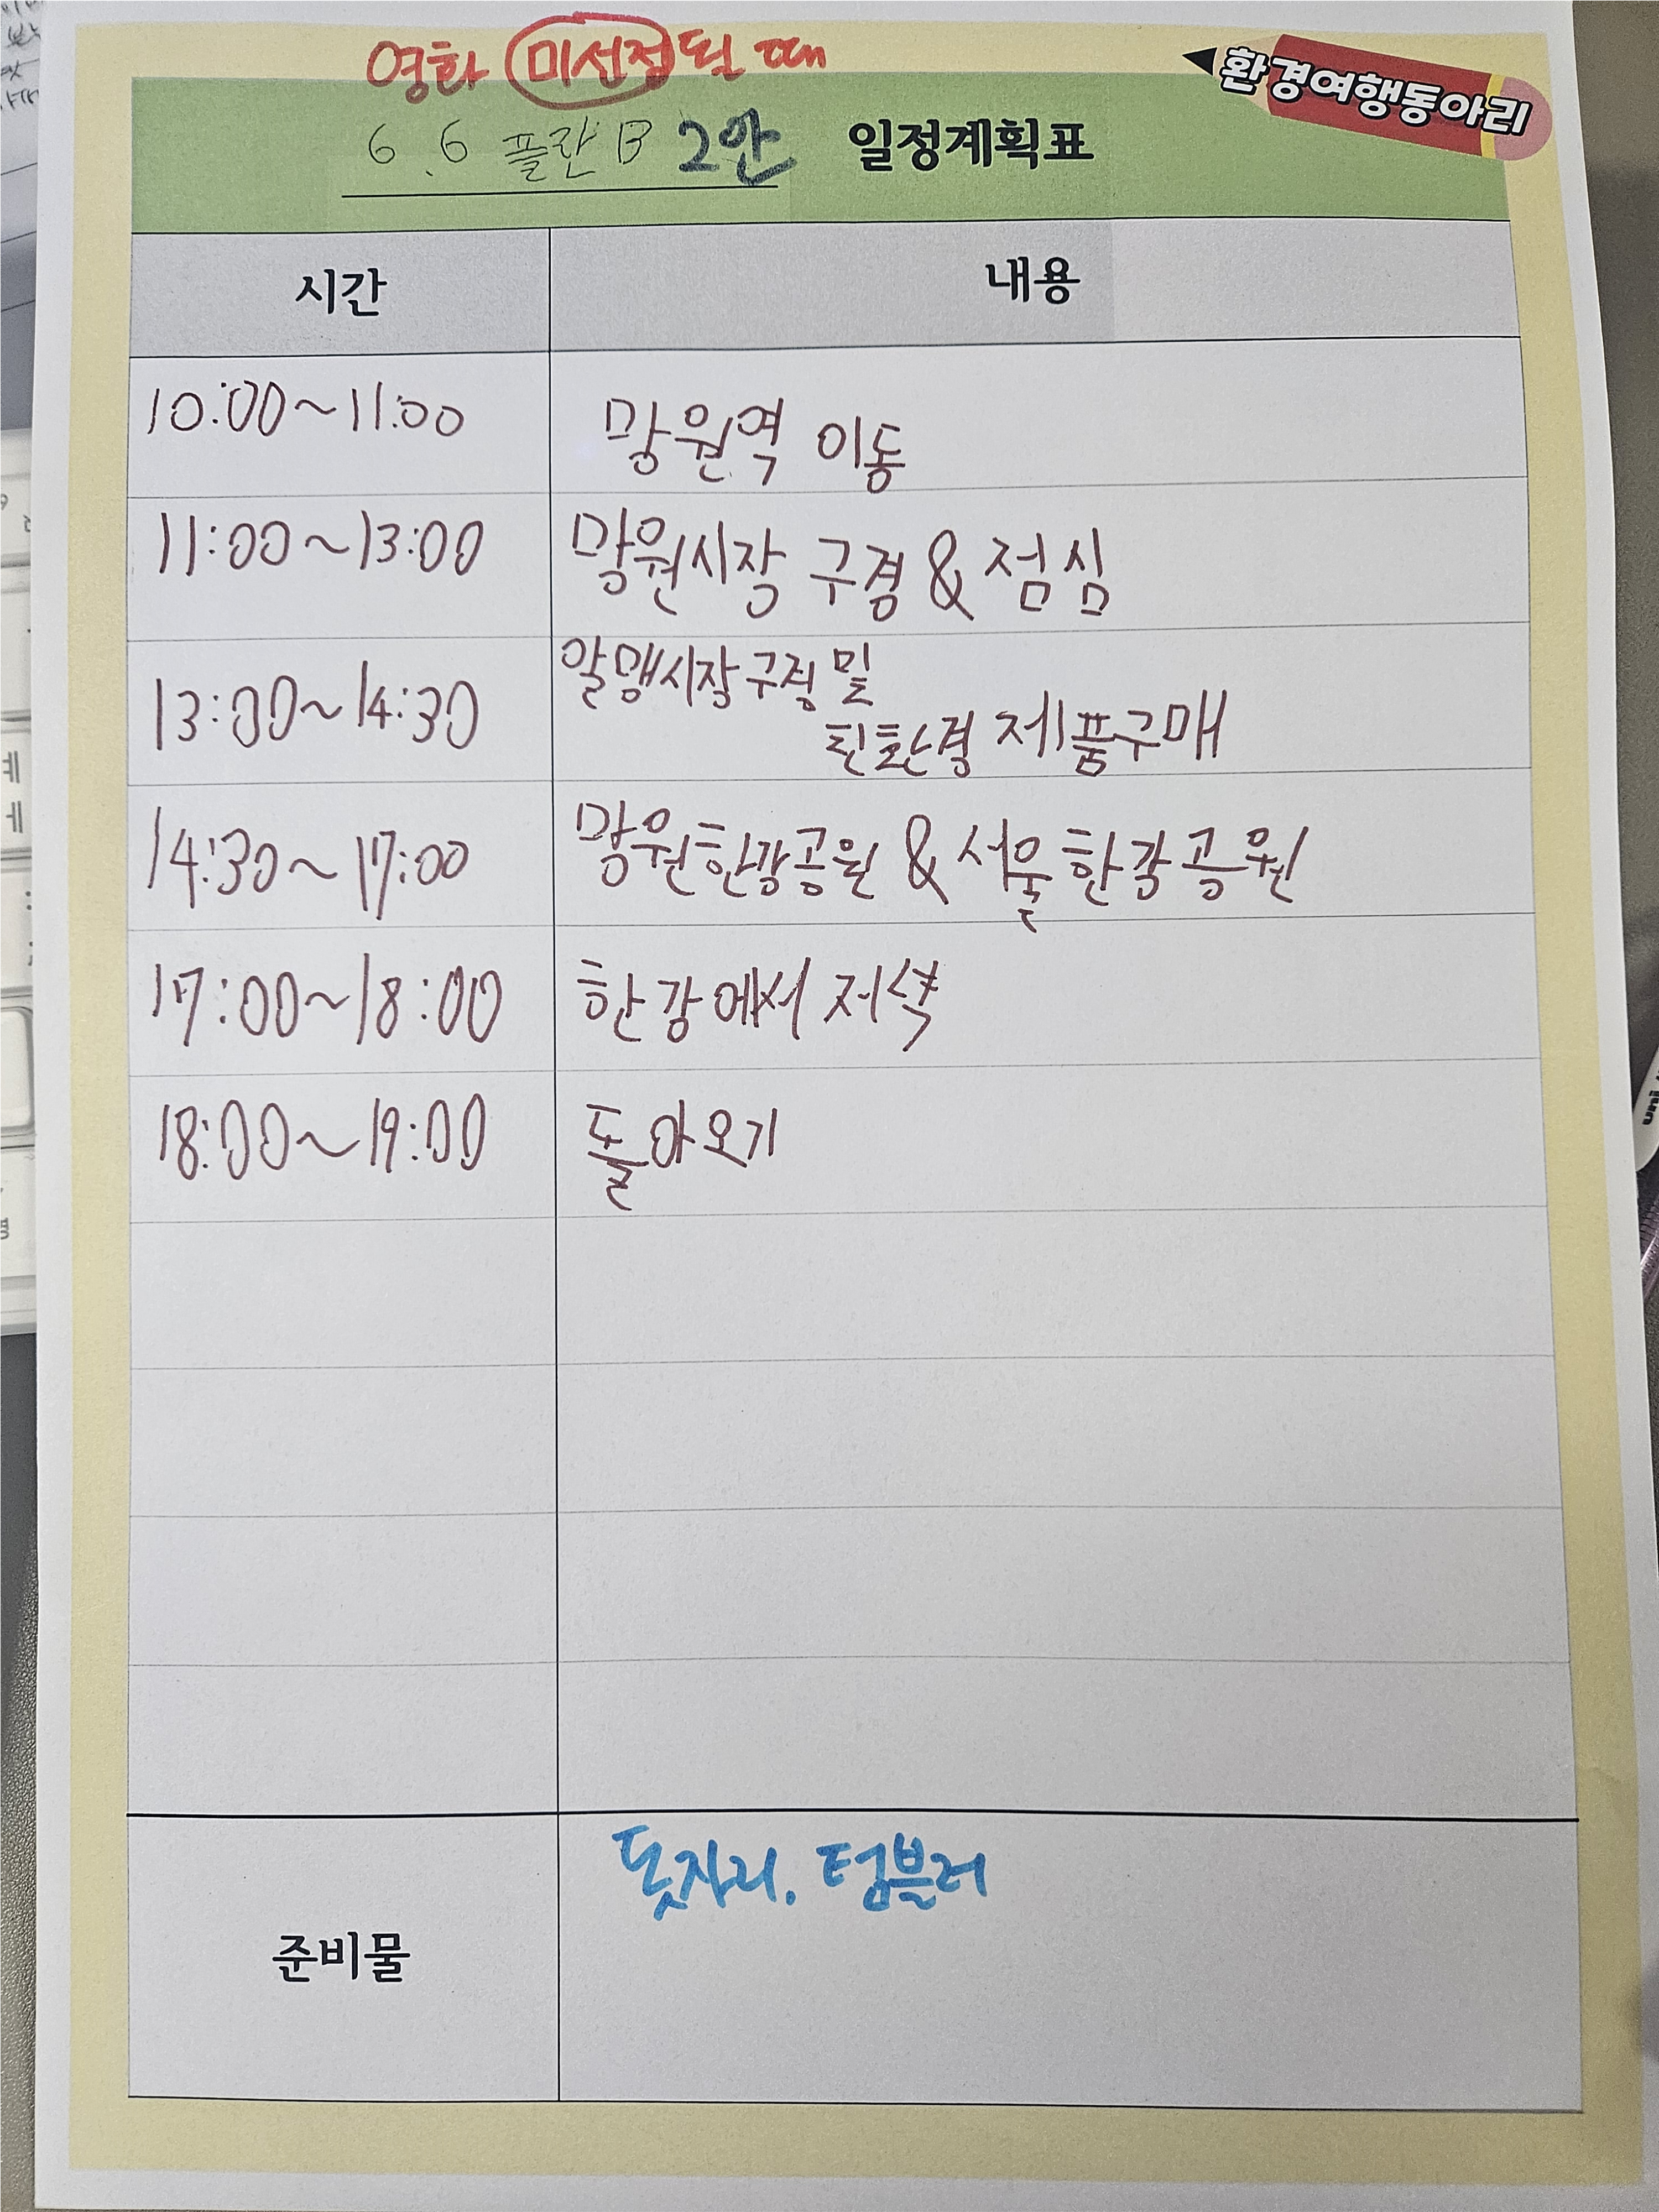 영화 미선정될 때
환경여행동아리
6.6 플랜B 2안 일정계획표
시간 내용
10:00~11:00 망원역 이동
11:00~13:00 망원시장 구경 & 점심
13:00~14:30 알맹시장구경 및
친환경 제품구매
14:30~17:00 망원한강공원 & 서울한강공원
17:00~18:00 한강에서 저녁
18:00~19:00 돌아오기
준비물 돗자리. 텀블러
uni